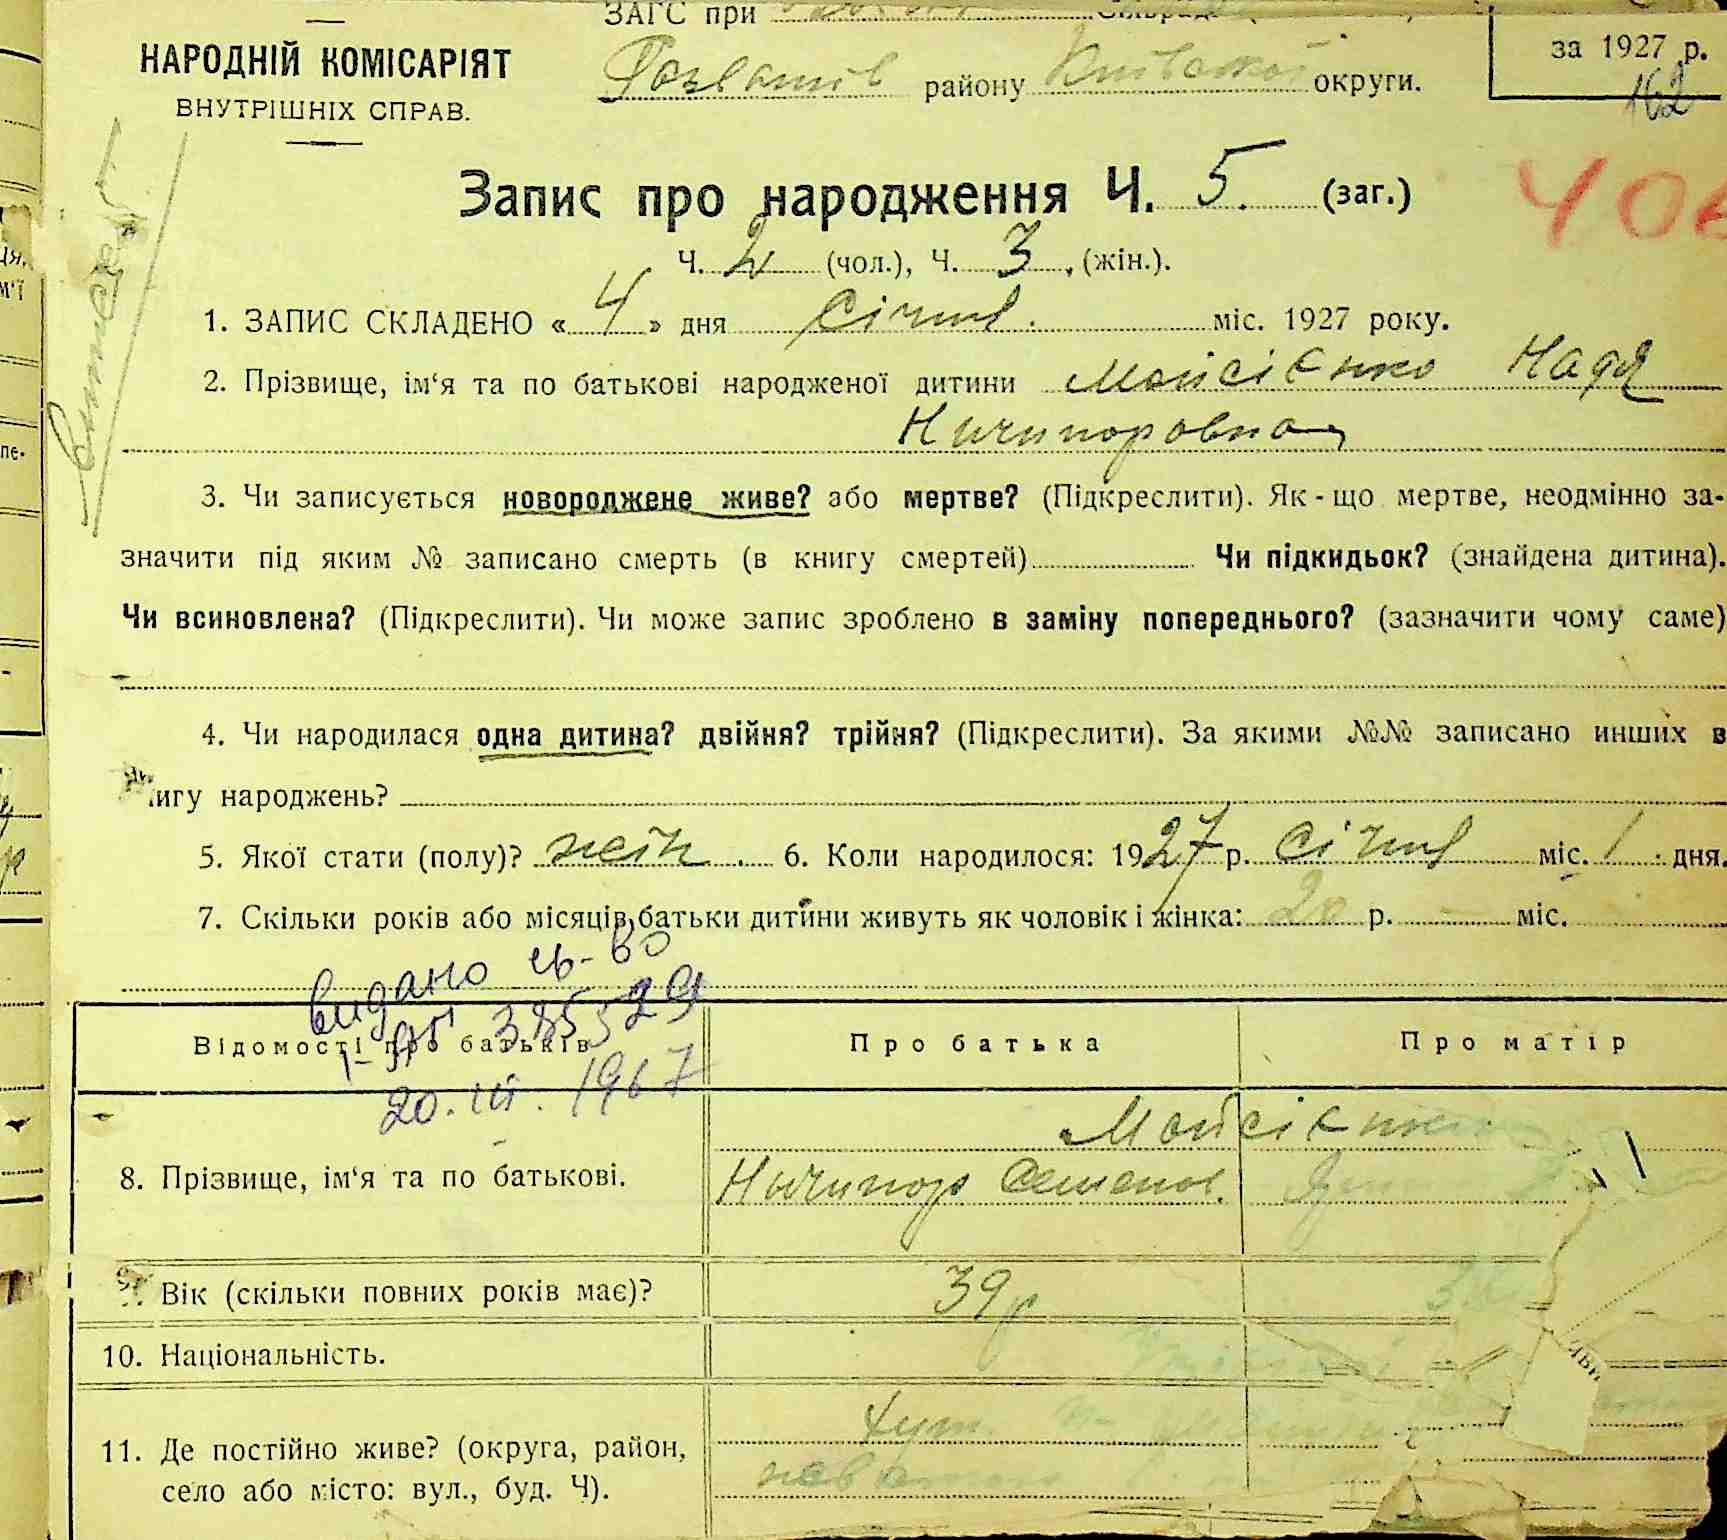 ЗАГС при
НАРОДНІЙ КОМІСАРІЯТ
ВНУТРІШНІХ СПРАВ.
району Київської округи.
за 1927 р.
162
Запис про народження Ч. 5. (заг.)
406
Ч. 2 (чол.), Ч. 3, (жін.).
1. ЗАПИС СКЛАДЕНО «4» дня Січня міс. 1927 року.
2. Прізвище, ім‘я та по батькові народженої дитини Мойсієнко Надя
Ничипоровна
3. Чи записується новороджене живе? або мертве? (Підкреслити). Як-що мертве, неодмінно за-
значити під яким № записано смерть (в книгу смертей) Чи підкидьок? (знайдена дитина).
Чи всиновлена? (Підкреслити). Чи може запис зроблено в заміну попереднього? (зазначити чому саме)
4. Чи народилася одна дитина? двійня? трійня? (Підкреслити). За якими №№ записано инших в
игу народжень?
5. Якої стати (полу)? жін. 6. Коли народилося: 1927 р. січня міс. 1 дня.
7. Скільки років або місяців батьки дитини живуть як чоловік і жінка: 20 р. - міс.
видано св-во
385529
20.III.1967
Відомості про батьків Про батька Про матір
Мойсієнко
8. Прізвище, ім‘я та по батькові. Ничипор Семенов.
9. Вік (скільки повних років має)? 39 р
10. Національність.
11. Де постійно живе? (округа, район, хут.
село або місто: вул., буд. Ч).